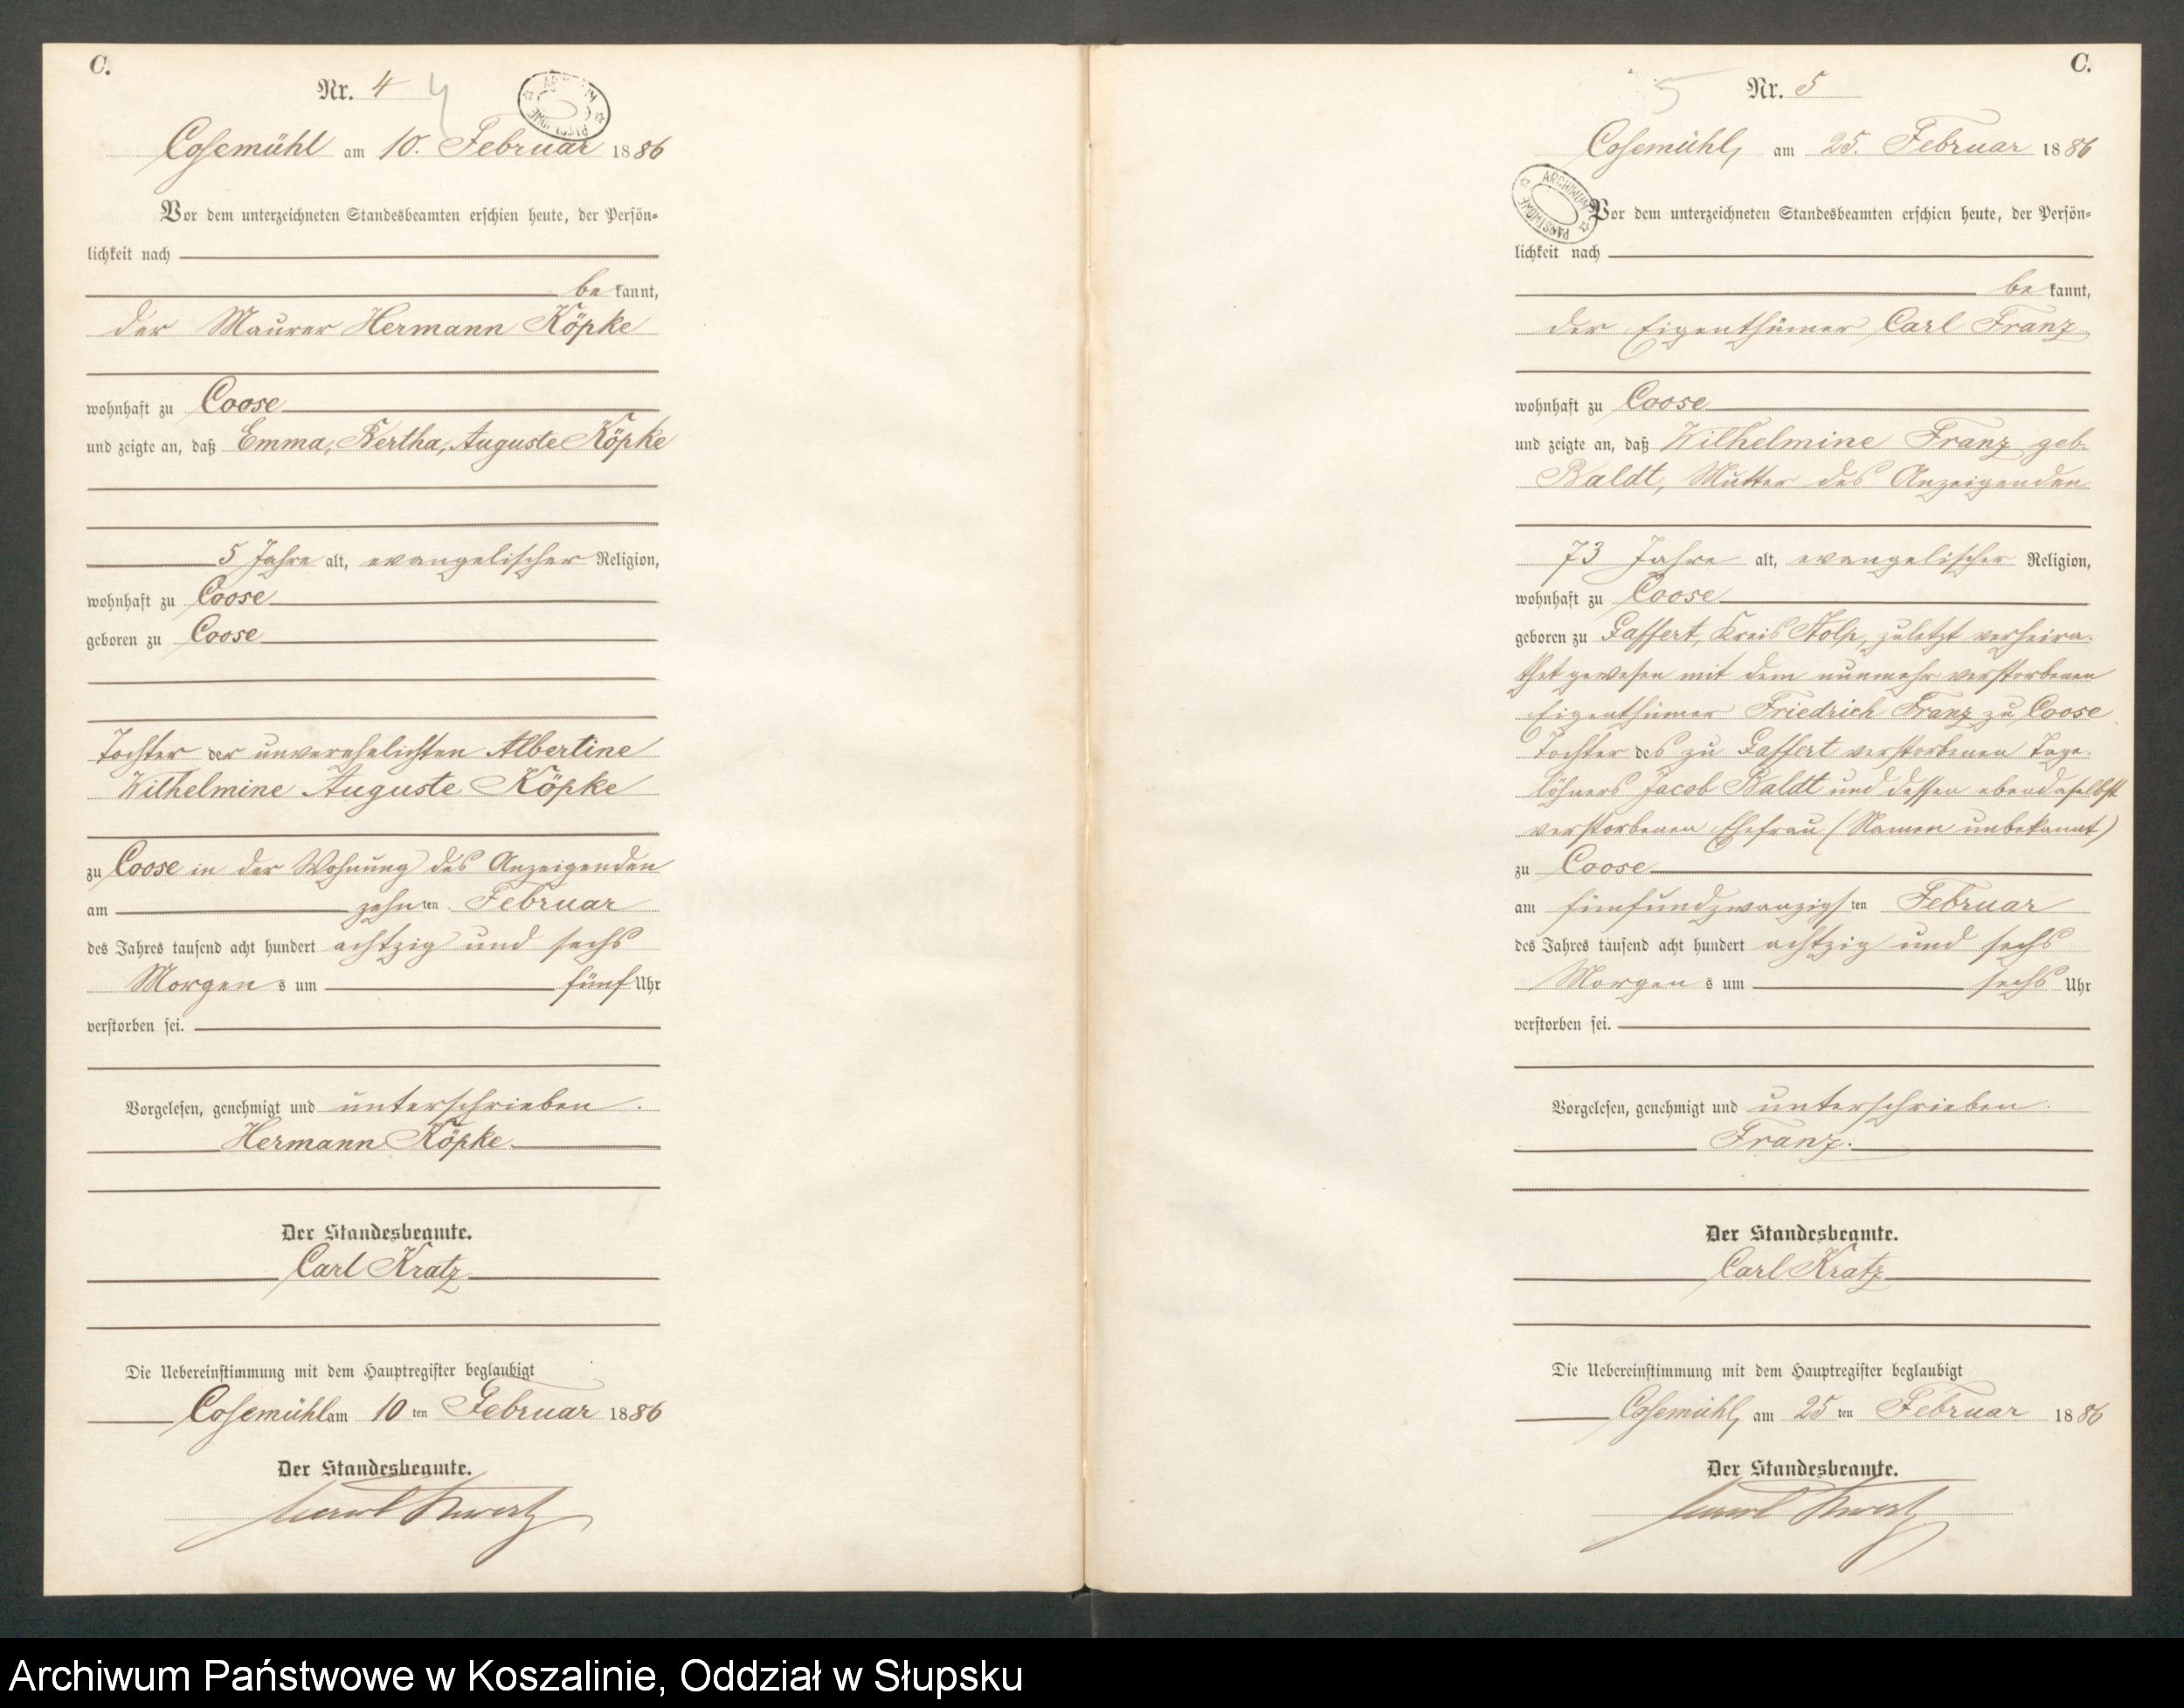 C.
Nr. 4 4
ARCHIWUM PAŃSTWOWE
Cosemühl am 10. Februar 1886
Vor dem unterzeichneten Standesbeamten erschien heute, der Persön-
lichkeit nach
be kannt,
der Maurer Hermann Köpke
wohnhaft zu Coose
und zeigte an, daß Emma, Bertha, Auguste Köpke
5 Jahre alt, evangelischer Religion,
wohnhaft zu Coose
geboren zu Coose
Tochter der unverehelichten Albertine
Wilhelmine Auguste Köpke
zu Coose in der Wohnung des Anzeigenden
am zehnten Februar
des Jahres tausend acht hundert achtzig und sechs
Morgens um fünf Uhr
verstorben sei.
Vorgelesen, genehmigt und unterschrieben.
Hermann Köpke
Der Standesbeamte.
Carl Kratz
Die Uebereinstimmung mit dem Hauptregister beglaubigt
Cosemühl am 10 ten Februar 1886
Der Standesbeamte.
C.
5 Nr. 5
Cosemühl, am 25. Februar 1886
ARCHIWUM PAŃSTWOWE
Vor dem unterzeichneten Standesbeamten erschien heute, der Persön-
lichkeit nach
be kannt,
der Eigenthümer Carl Franz
wohnhaft zu Coose
und zeigte an, daß Wilhelmine Franz geb.
Baldt, Mutter des Anzeigenden
73 Jahre alt, evangelischer Religion,
wohnhaft zu Coose
geboren zu Gaffert, Kreis Stolp, zuletzt verheira-
thet gewesen mit dem nunmehr verstorbenen
Eigenthümer Friedrich Franz zu Coose
Tochter des zu Gaffert verstorbenen Tage-
löhners Jacob Baldt und dessen ebendaselbst
verstorbenen Ehefrau (Namen unbekannt)
zu Coose
am fünfundzwanzigsten Februar
des Jahres tausend acht hundert achtzig und sechs
Morgens um sechs Uhr
verstorben sei.
Vorgelesen, genehmigt und unterschrieben.
Franz.
Der Standesbeamte.
Carl Kratz
Die Uebereinstimmung mit dem Hauptregister beglaubigt
Cosemühl, am 25 ten Februar 1886
Der Standesbeamte.
Archiwum Państwowe w Koszalinie, Oddział w Słupsku